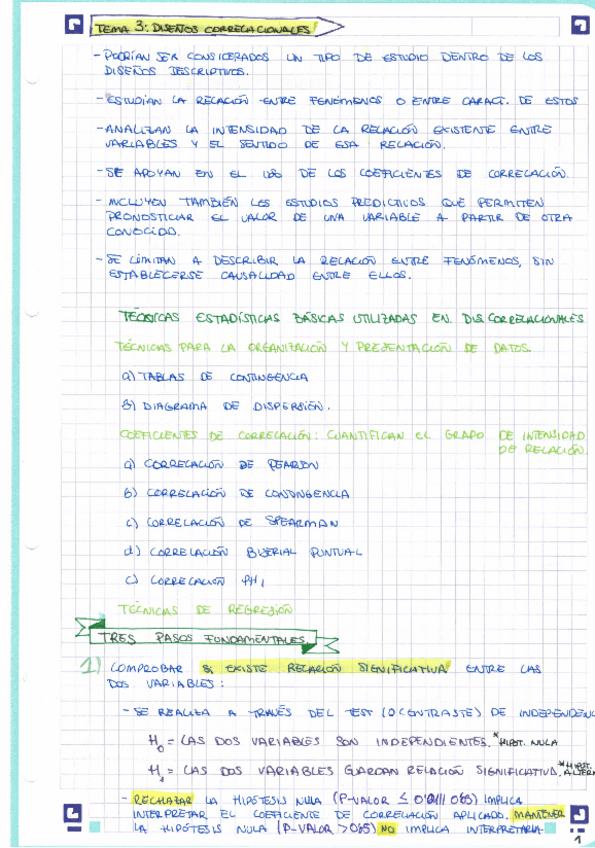 TEMA 3: DISEÑOS CORRELACIONALES
- PODRÍAN SER CONSIDERADOS UN TIPO DE ESTUDIO DENTRO DE LOS
DISEÑOS DESCRIPTIVOS.
- ESTUDIAN LA RELACIÓN ENTRE FENÓMENOS O ENTRE CARACT. DE ESTOS
- ANALIZAN LA INTENSIDAD DE LA RELACIÓN EXISTENTE ENTRE
VARIABLES Y EL SENTIDO DE ESA RELACIÓN.
- SE APOYAN EN EL USO DE LOS COEFICIENTES DE CORRELACIÓN.
- INCLUYEN TAMBIÉN LOS ESTUDIOS PREDICTIVOS QUE PERMITEN
PRONOSTICAR EL VALOR DE UNA VARIABLE A PARTIR DE OTRA
CONOCIDO.
- SE LIMITAN A DESCRIBIR LA RELACIÓN ENTRE FENÓMENOS, SIN
ESTABLECERSE CAUSALIDAD ENTRE ELLOS.
TÉCNICAS ESTADÍSTICAS BÁSICAS UTILIZADAS EN DIS. CORRELACIONALES
TÉCNICAS PARA LA ORGANIZACIÓN Y PRESENTACIÓN DE DATOS.
a) TABLAS DE CONTINGENCIA
B) DIAGRAMA DE DISPERSIÓN.
COEFICIENTES DE CORRELACIÓN: CUANTIFICAN EL GRADO DE INTENSIDAD
DE RELACIÓN.
a) CORRELACIÓN DE PEARSON
b) CORRELACIÓN DE CONTINGENCIA
c) CORRELACIÓN DE SPEARMAN
d) CORRELACIÓN BISERIAL PUNTUAL
c) CORRELACIÓN PHI
TÉCNICAS DE REGRESIÓN
TRES PASOS FUNDAMENTALES.
1) COMPROBAR SI EXISTE RELACIÓN SIGNIFICATIVA ENTRE LAS
DOS VARIABLES:
- SE REALIZA A TRAVÉS DEL TEST (O CONTRASTE) DE INDEPENDENC
H0 = LAS DOS VARIABLES SON INDEPENDIENTES. *HIPÓT. NULA
H1 = LAS DOS VARIABLES GUARDAN RELACIÓN SIGNIFICATIVA. *HIPÓT. ALTERN
- RECHAZAR LA HIPÓTESIS NULA (P-VALOR ≤ 0'05) IMPLICA
INTERPRETAR EL COEFICIENTE DE CORRELACIÓN APLICADO. MANTENER
LA HIPÓTESIS NULA (P-VALOR > 0'05) NO IMPLICA INTERPRETARLA
1